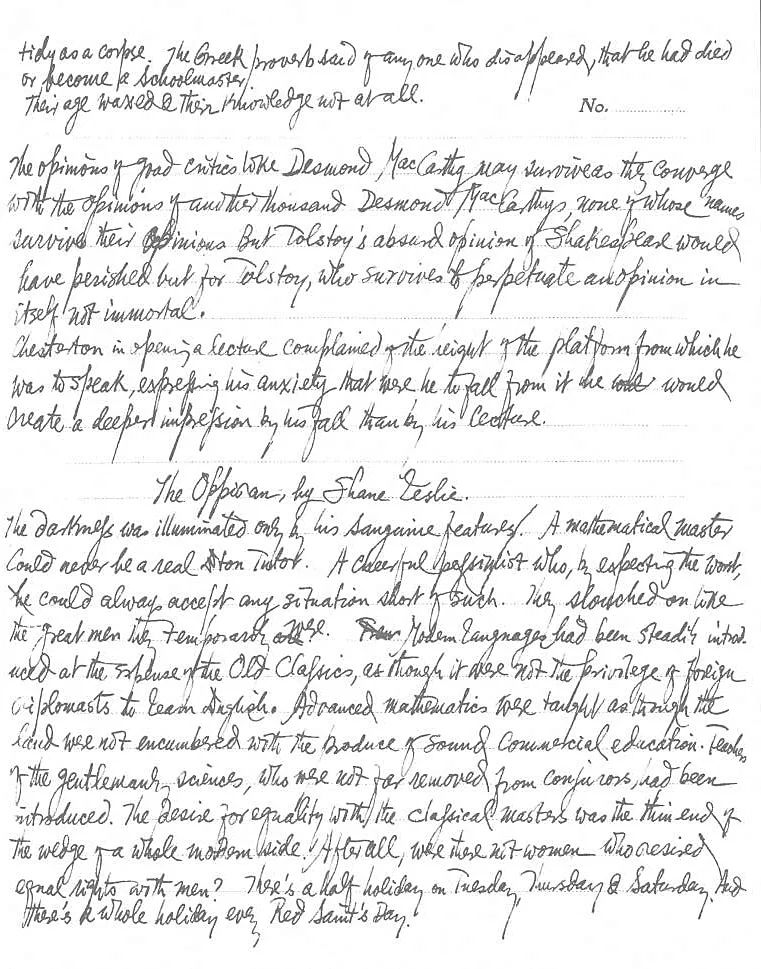 tidy as a corpse. The Greek proverb said of any one who disappeared, that he had died
or become a schoolmaster.
Their age waxed & their knowledge not at all.
No.
The opinions of good critics like Desmond MacCarthy may survive as they converge
with the opinions of another thousand Desmond MacCarthys, none of whose names
survive their opinions But Tolstoy's absurd opinion of Shakespeare would
have perished but for Tolstoy, who survives to perpetuate an opinion in
itself not immortal.
Chesterton in opening a lecture complained of the height of the platform from which he
was to speak, expressing his anxiety that were he to fall from it he would
create a deeper impression by his fall than by his lecture.
The Oppidan, by Shane Leslie.
The darkness was illuminated only by his sanguine features. A mathematical master
could never be a real Eton Tutor. A cheerful pessimist who, by expecting the worst,
he could always accept any situation short of such. They slouched on like
the great men they temporarily were. Modern languages had been steadily introd-
uced at the expense of the Old Classics, as though it were not the privilege of foreign
diplomats to learn English. Advanced mathematics were taught as though the
land were not encumbered with the produce of sound commercial education. Teachers
of the gentlemanly sciences, who were not far removed from conjurors, had been
introduced. The desire for equality with the classical masters was the thin end of
the wedge of a whole modern side. After all, were there not women who desired
equal rights with men? There's a half holiday on Tuesday, Thursday & Saturday, And
there's a whole holiday every Red Saint's Day.